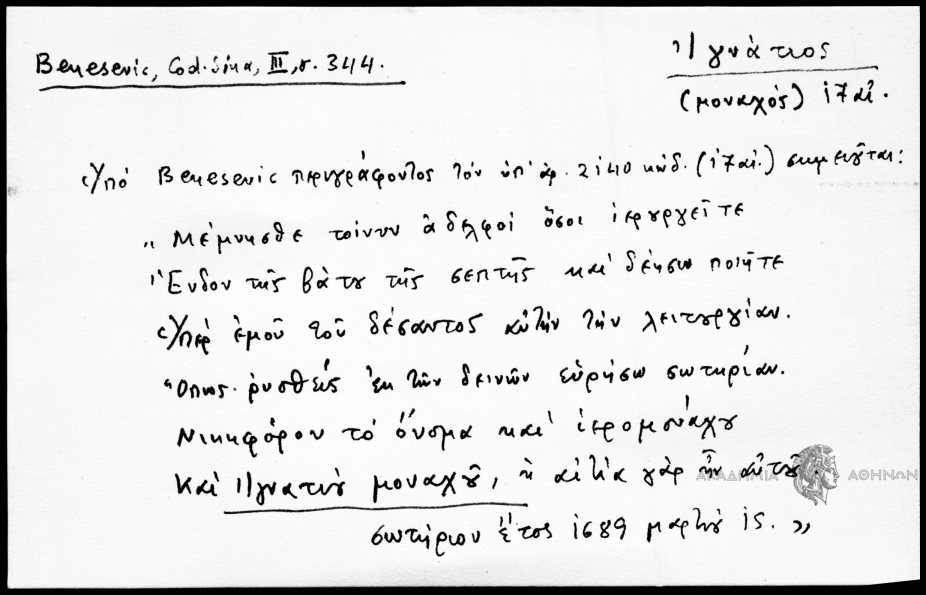 Benesevic, Cod. Sina, III, σ. 344.
Ἰγνάτιος
(μοναχός) 17 αἰ.
Ὑπό Benesevic περιγράφοντος τὸν ὑπ' ἀρ. 2140 κώδ. (17 αἰ.) σημειοῦται:
„ Μέμνησθε τοίνυν ἀδελφοί ὅσοι ἱερυργεῖτε
Ἔνδον τῆς βάτου τῆς σεπτῆς καὶ δέησιν ποιῆτε
Ὑπέρ ἐμοῦ τοῦ δέσαντος αὐτήν τὴν λειτουργίαν.
Ὅπως ῥυσθείς ἐκ τῶν δεινῶν εὑρήσω σωτηρίαν.
Νικηφόρου τό ὄνομα καί ἱερομονάχου
Καί Ἰγνατίου μοναχοῦ, ἡ αἰτία γάρ ἦν αὐτοῦ.
σωτήριον ἔτος 1689 μαρτίου 15. „
ΑΚΑΔΗΜΙΑ ΑΘΗΝΩΝ